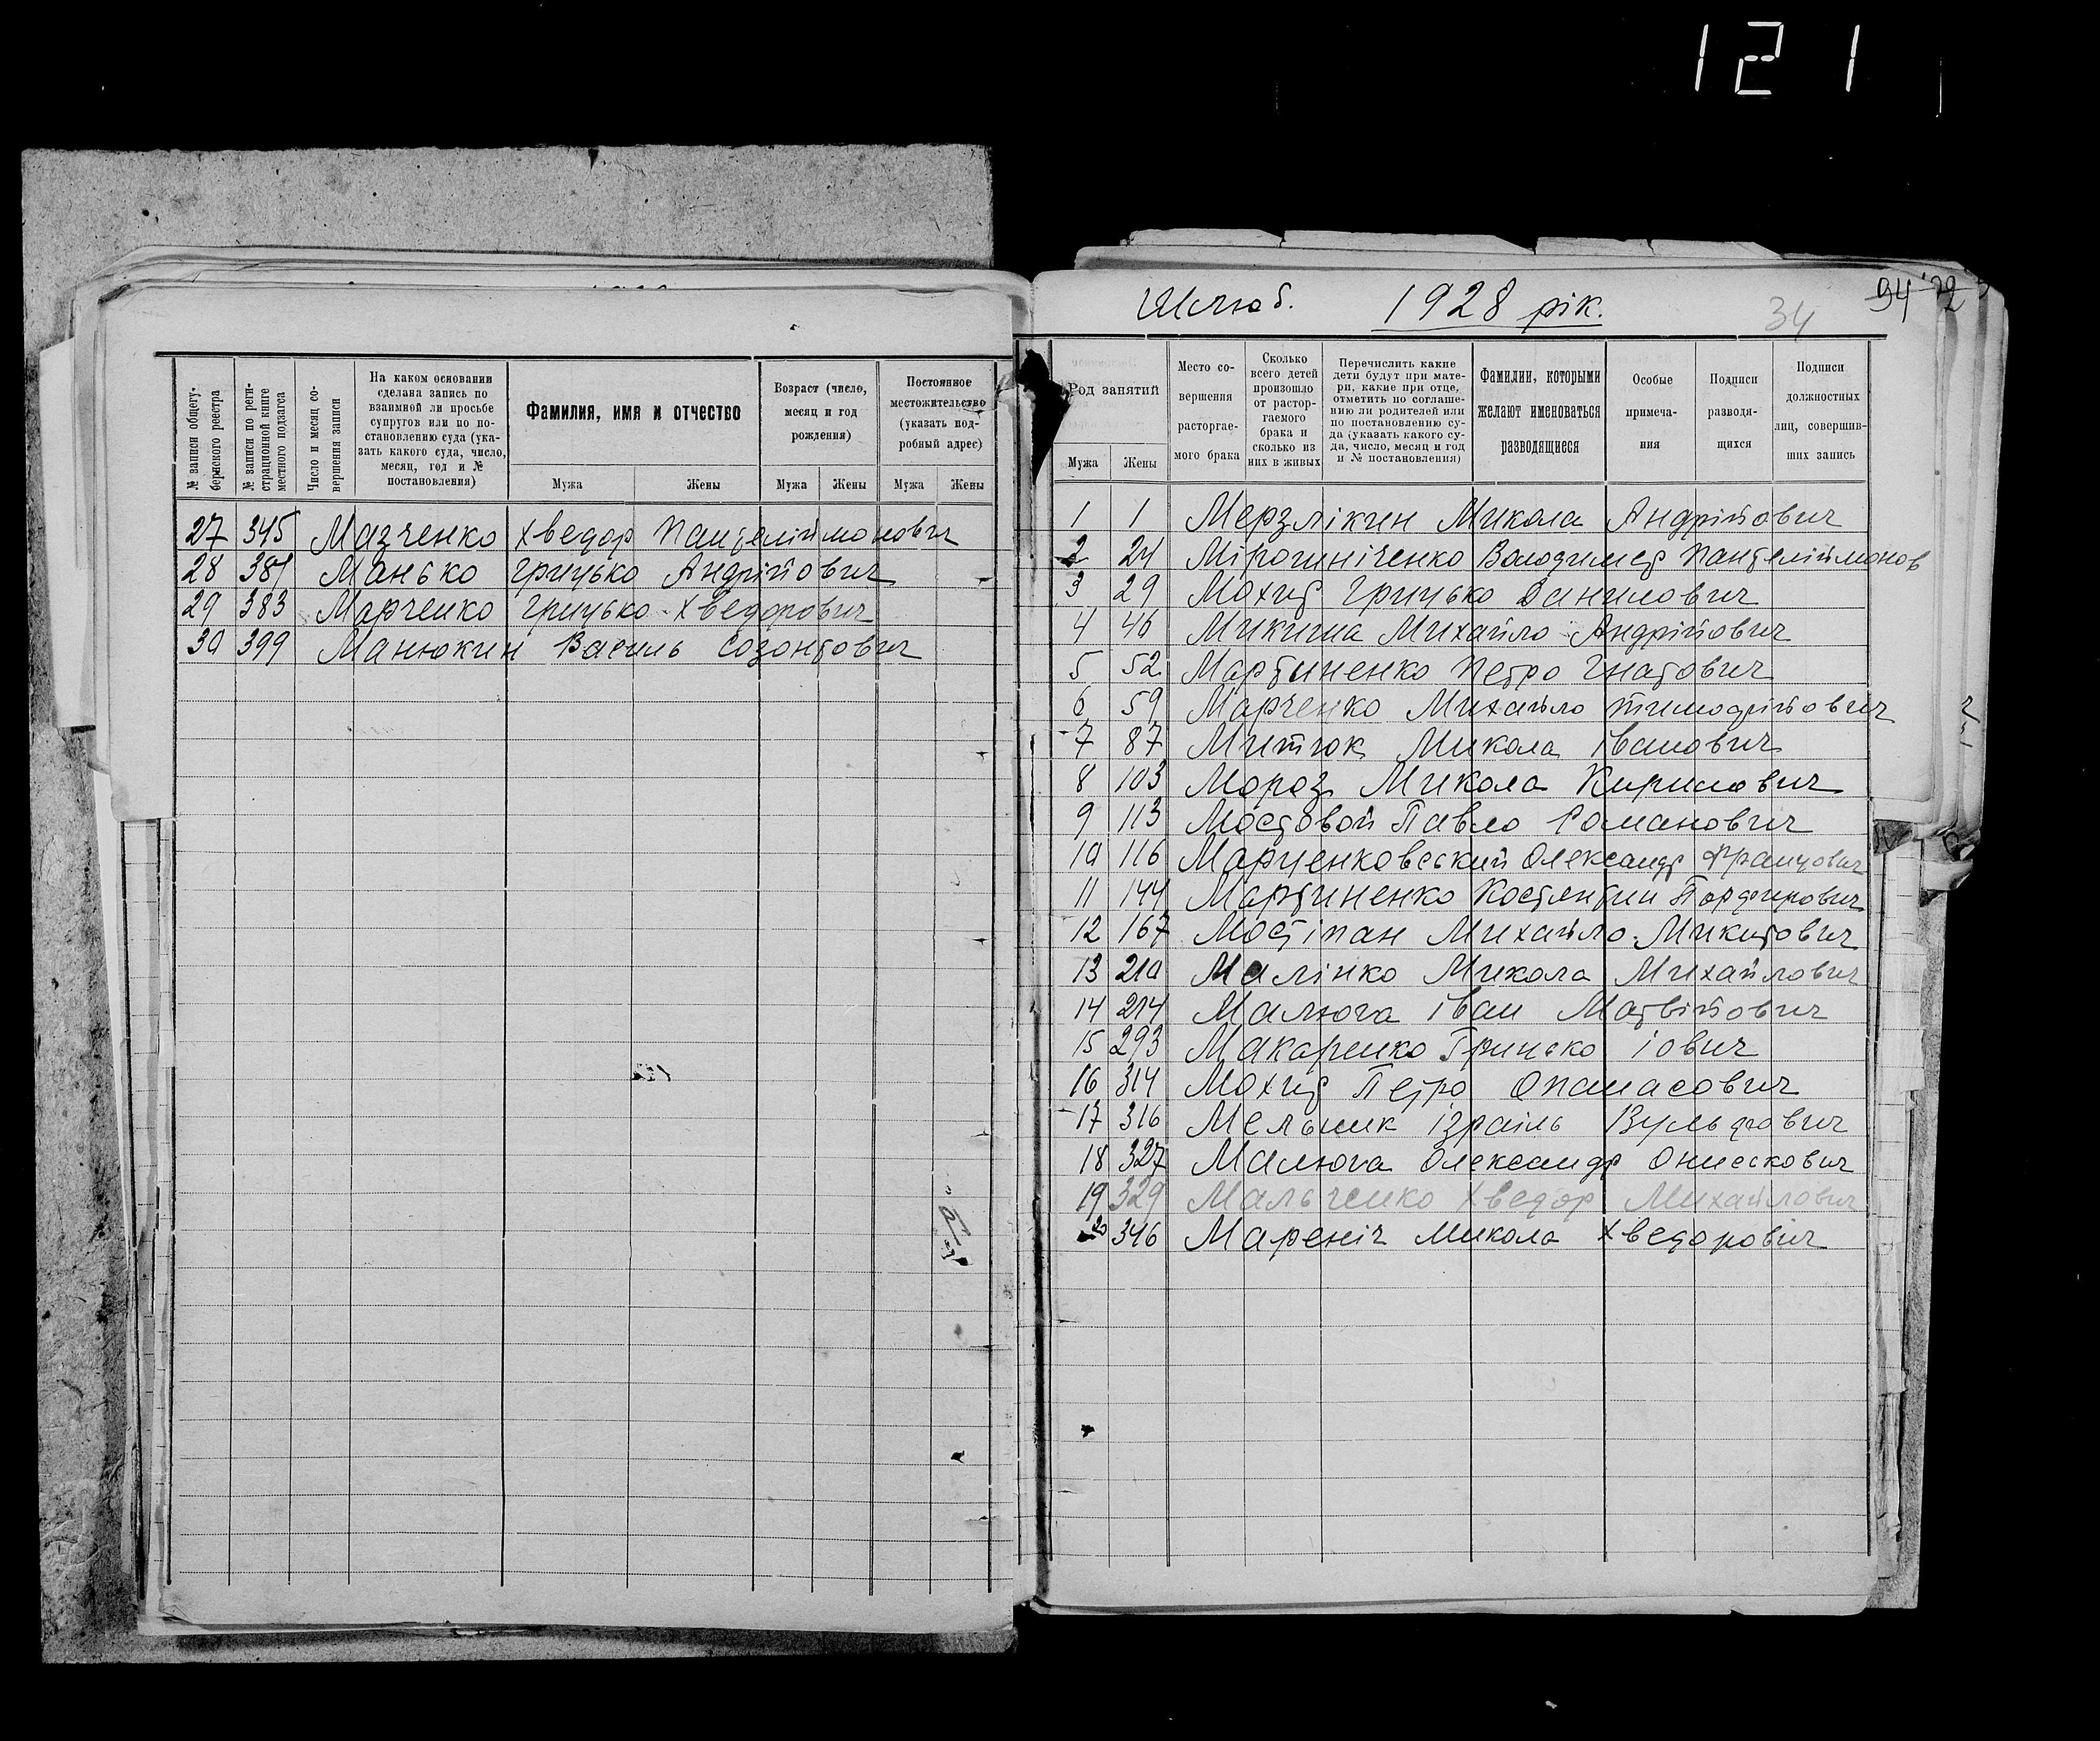 121
№ записи общегубернского реестра
№ записи по регистрационной книге местного подзагса
Число и месяц совершения записи
На каком основании
сделана запись по
взаимной ли просьбе
супругов или по по-
становлению суда (ука-
зать какого суда, число,
месяц, год и №
постановления)
Фамилия, имя и отчество
Мужа
Жены
Возраст (число,
месяц и год
рождения)
Мужа
Жены
Постоянное
местожительство
(указать под-
робный адрес)
Мужа
Жены
27 345 Мазченко Хведор Пантеліймонович
28 381 Манько Грицько Андрійович
29 383 Марченко Грицько Хведорович
30 399 Манюкин Василь Созонтович
Шлюб. 1928 рік.
34
94
Род занятий
Мужа
Жены
Место со-
вершения
расторгае-
мого брака
Сколько
всего детей
произошло
от растор-
гаемого
брака и
сколько из
них в живых
Перечислить какие
дети будут при мате-
ри, какие при отце,
отметить по соглаше-
нию ли родителей или
по постановлению су-
да (указать какого су-
да, число, месяц и год
и № постановления)
Фамилии, которыми
желают именоваться
разводящиеся
Особые
примеча-
ния
Подписи
разводя-
щихся
Подписи
должностных
лиц, совершив-
ших запись
1 1 Мерзлікин Микола Андрійович
2 24 Мірошніченко Володимер Пантеліймонов
3 29 Мохир Грицько Данилович
4 46 Микиша Михайло Андрійович
5 52 Мартиненко Петро Гнатович
6 59 Марченко Михайло Тимофійович
7 87 Митюк Микола Іванович
8 103 Мороз Микола Кирилович
9 113 Мостовой Павло Романович
10 116 Марценковський Олександр Францович
11 144 Мартиненко Костянтин Порфирович
12 167 Мостіпан Михайло Микитович
13 210 Малінко Микола Михайлович
14 214 Малюга Іван Матвійович
15 293 Макаренко Гринько Іович
16 314 Мохир Петро Опанасович
17 316 Мельник Ізраіль Вульфович
18 327 Малюга Олександр Ониськович
19 329 Мальченко Хведор Михайлович
20 346 Мареніч Микола Хведорович